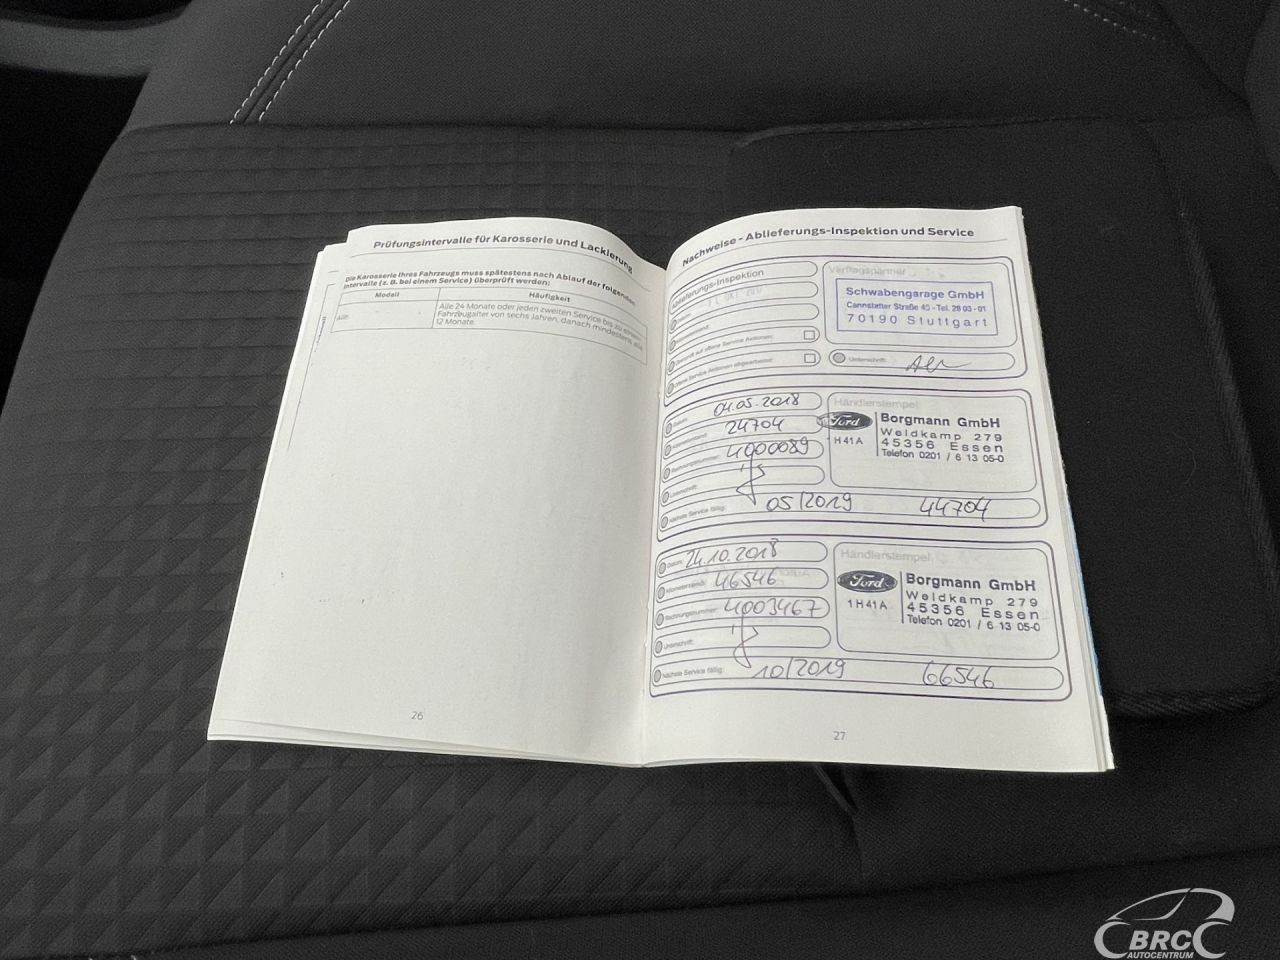 Prüfungsintervalle für Karosserie und Lackierung
Die Karosserie Ihres Fahrzeugs muss spätestens nach Ablauf der folgenden
Intervalle (z. B. bei einem Service) überprüft werden:
Modell
Häufigkeit
Alle
Alle 24 Monate oder jeden zweiten Service bis zu einem
Fahrzeugalter von sechs Jahren, danach mindestens alle
12 Monate.
26
Nachweise - Ablieferungs-Inspektion und Service
Ablieferungs-Inspektion
Datum:
Offene Service Aktionen abgearbeitet:
Vertragspartner
Schwabengarage GmbH
Cannstatter Straße 45 - Tel. 28 03-01
70190 Stuttgart
Unterschrift:
Datum: 04.05.2018
Kilometerstand: 24704
Rechnungsnummer: 4000089
Unterschrift:
Nächste Service fällig: 05/2019 44704
Händlerstempel:
Ford
1H41A
Borgmann GmbH
Weldkamp 279
45356 Essen
Telefon 0201 / 6 13 05-0
Datum: 24.10.2018
Kilometerstand: 46546
Rechnungsnummer: 4003467
Unterschrift:
Nächste Service fällig: 10/2019 66546
Händlerstempel:
Ford
1H41A
Borgmann GmbH
Weldkamp 279
45356 Essen
Telefon 0201 / 6 13 05-0
27
BRC
AUTOCENTRUM